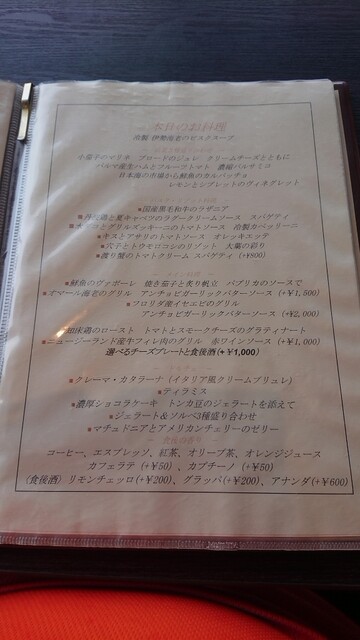 本日のお料理
冷製 伊勢海老のビスクスープ
小茄子のマリネ ブロードのジュレ クリームチーズとともに
パルマ産生ハムとフルーツトマト 濃縮バルサミコ
日本海の市場から鮮魚のカルパッチョ
レモンとシブレットのヴィネグレット
国産黒毛和牛のラザニア
丹波鶏と夏キャベツのラグークリームソース スパゲティ
グリルズッキーニのトマトソース 冷製カペッリーニ
キスとアサリのトマトソース オレッキエッテ
穴子とトウモロコシのリゾット 大葉の彩り
渡り蟹のトマトクリーム スパゲティ(+¥800)
メイン料理
鮮魚のヴァポーレ 焼き茄子と炙り帆立 パプリカのソースで
オマール海老のグリル アンチョビガーリックバターソース (+¥1,500)
フロリダ産イセエビのグリル
アンチョビガーリックバターソース (+¥2,000)
知床鶏のロースト トマトとスモークチーズのグラティナート
ニュージーランド産牛フィレ肉のグリル 赤ワインソース (+¥1,000)
選べるチーズプレートと食後酒(+¥1,000)
クレーマ・カタラーナ (イタリア風クリームブリュレ)
ティラミス
濃厚ショコラケーキ トンカ豆のジェラートを添えて
ジェラート&ソルベ3種盛り合わせ
マチェドニアとアメリカンチェリーのゼリー
コーヒー、エスプレッソ、紅茶、オリーブ茶、オレンジジュース
カフェラテ (+¥50) 、カプチーノ (+¥50)
(食後酒) リモンチェッロ(+¥200)、グラッパ(+¥200)、アナンダ(+¥600)